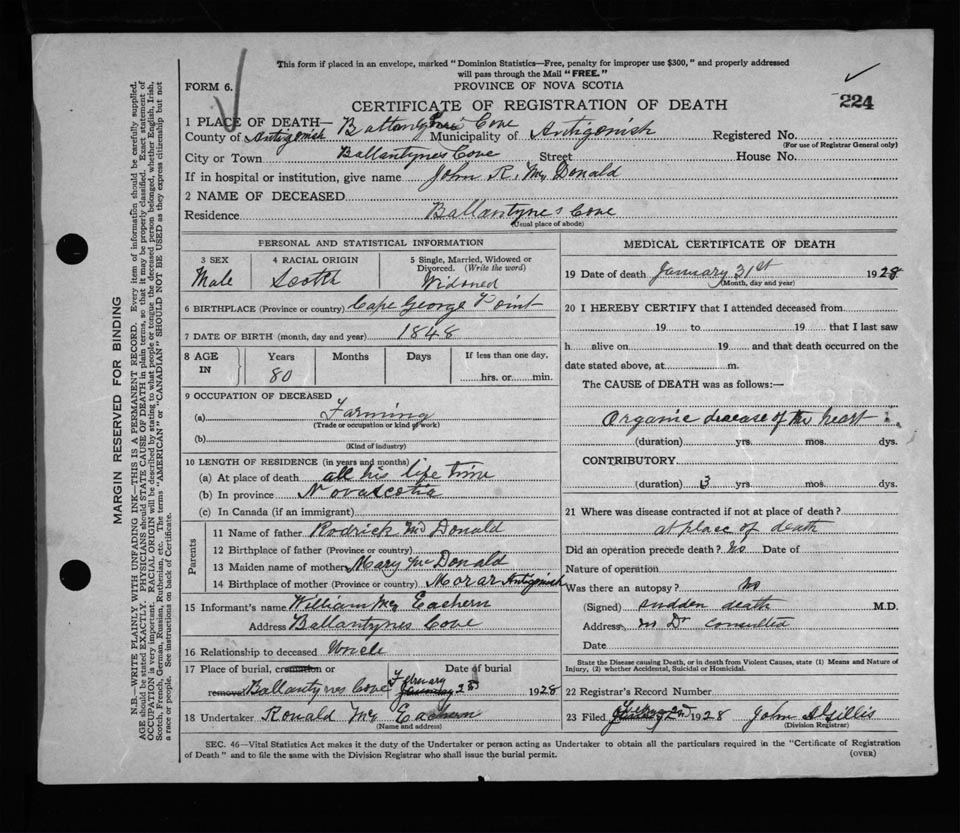 This form if placed in an envelope, marked "Dominion Statistics—Free, penalty for improper use $300," and properly addressed
will pass through the Mail "FREE."
FORM 6.
PROVINCE OF NOVA SCOTIA
CERTIFICATE OF REGISTRATION OF DEATH
224
1 PLACE OF DEATH— Ballantynes Cove
County of Antigonish Municipality of Antigonish Registered No.
(For use of Registrar General only)
City or Town Ballantynes Cove Street House No.
If in hospital or institution, give name John R. Mc Donald
2 NAME OF DECEASED
Residence Ballantynes Cove
(Usual place of abode)
PERSONAL AND STATISTICAL INFORMATION
3 SEX 4 RACIAL ORIGIN 5 Single, Married, Widowed or Divorced. (Write the word)
Male Scotch Widowed
6 BIRTHPLACE (Province or country) Cape George Point
7 DATE OF BIRTH (month, day and year) 1848
8 AGE IN Years Months Days If less than one day,
80 hrs. or min.
9 OCCUPATION OF DECEASED
(a) Farming
(Trade or occupation or kind of work)
(b)
(Kind of industry)
10 LENGTH OF RESIDENCE (in years and months)
(a) At place of death all his life time
(b) In province Nova Scotia
(c) In Canada (if an immigrant)
Parents
11 Name of father Rodrick Mc Donald
12 Birthplace of father (Province or country)
13 Maiden name of mother Mary Mc Donald
14 Birthplace of mother (Province or country) Morar Antigonish
15 Informant's name William Mc Eachern
Address Ballantynes Cove
16 Relationship to deceased Uncle
17 Place of burial, cremation or removal Ballantynes Cove Date of burial February 2nd 1928
18 Undertaker Ronald Mc Eachern
(Name and address)
MEDICAL CERTIFICATE OF DEATH
19 Date of death January 31st 1928
(Month, day and year)
20 I HEREBY CERTIFY that I attended deceased from
19 to 19 that I last saw
h alive on 19 and that death occurred on the
date stated above, at m.
The CAUSE of DEATH was as follows:—
Organic disease of the heart
(duration) yrs. mos. dys.
CONTRIBUTORY
(duration) 3 yrs. mos. dys.
21 Where was disease contracted if not at place of death?
at place of death
Did an operation precede death? No Date of
Nature of operation
Was there an autopsy? No
(Signed) sudden death M.D.
Address no Dr consulted
Date
State the Disease causing Death, or in death from Violent Causes, state (1) Means and Nature of
Injury, (2) whether Accidental, Suicidal or Homicidal.
22 Registrar's Record Number
23 Filed 2nd 1928 John Gillis
(Division Registrar)
SEC. 46—Vital Statistics Act makes it the duty of the Undertaker or person acting as Undertaker to obtain all the particulars required in the "Certificate of Registration
of Death" and to file the same with the Division Registrar who shall issue the burial permit.
(OVER)
MARGIN RESERVED FOR BINDING
N.B.—WRITE PLAINLY WITH UNFADING INK—THIS IS A PERMANENT RECORD. Every item of information should be carefully supplied.
AGE should be stated EXACTLY. PHYSICIANS should STATE CAUSE OF DEATH in plain terms, so that it may be properly classified. Exact statement of
OCCUPATION is very important. RACIAL ORIGIN will be described by stating to what people or tongue the deceased person belonged, whether English, Irish,
Scotch, French, German, Russian, Ruthenian, etc. The terms "AMERICAN" or "CANADIAN" SHOULD NOT BE USED as they express citizenship but not
a race or people. See instructions on back of Certificate.